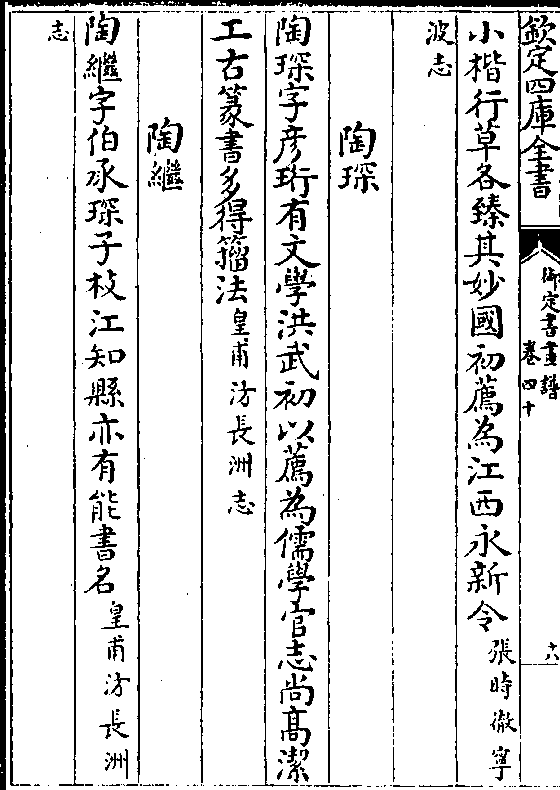 欽定四庫全書
御定書畫譜
卷四十
六
小楷行草各臻其妙國初薦為江西永新令張時徹寧
波志
陶琛
陶琛字彦珩有文學洪武初以薦為儒學官志尚髙潔
工古篆書多得籀法皇甫汸長洲志
陶繼
陶繼字伯承琛子枝江知縣亦有能書名皇甫汸長洲
志